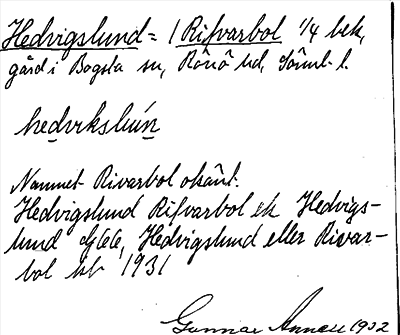 Hedvigslund = / Rifvarbol 1/4 bek,
gård i Bogsta sn, Rönö hd, Söml. l.
hedvikslún
Namnet Rivarbol okänt.
Hedvigslund Rifvarbol ek Hedvigs-
lund Hedvigslund eller Rivar-
bol kb 1931
Gunnar 1932